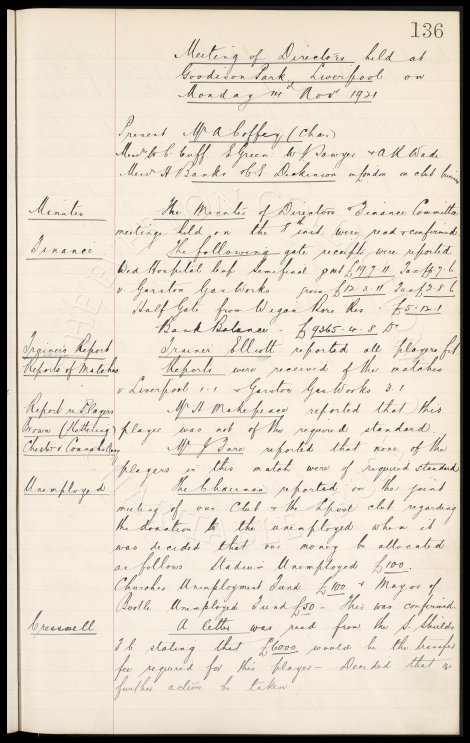 136
Meeting of Directors held at
Goodison Park, Liverpool on
Monday 14th Novr 1921
Present Mr A Coffey (Chair)
Messrs W. C. Cuff E Green W J Sawyer & A. R. Wade
Messrs A Banks & C. E. Dickinson in London on club business
Minutes
The Minutes of Directors & Finance Committee
meetings held on the 8th inst. were read & confirmed
Finance
The following gate receipts were reported
Wed Hospital Cup Semifinal
v. Garston Gas Works gross £12.3.11 Tax £2.8.6
Half Gate from Wigan Boro Res - £5.12.1
Bank Balance - £9365.4.8 Dr
Trainers Report
Trainer Elliott reported all players fit
Reports of Matches
Reports were received of the matches
v Liverpool 1.1 & Garston Gas Works 3.1
Report re Players
Mr H Makepeace reported that this
Brown (Kettering)
player was not of the required standard
Chester v Connahs Quay
Mr J reported that none of the
players in this match were of required standard
Unemployed
The Chairman reported on the joint
meeting of our Club & the Lpool club regarding
the donation to the unemployed when it
was decided that our money be allocated
as follows Unemployed £100.
Churches Unemployment Fund £100 & Mayor of
Bootle Unemployed Fund £50 - This was confirmed.
Cresswell
A letter was read from the S. Shields
F C stating that £6000 would be the transfer
fee required for this player - Decided that no
further action be taken